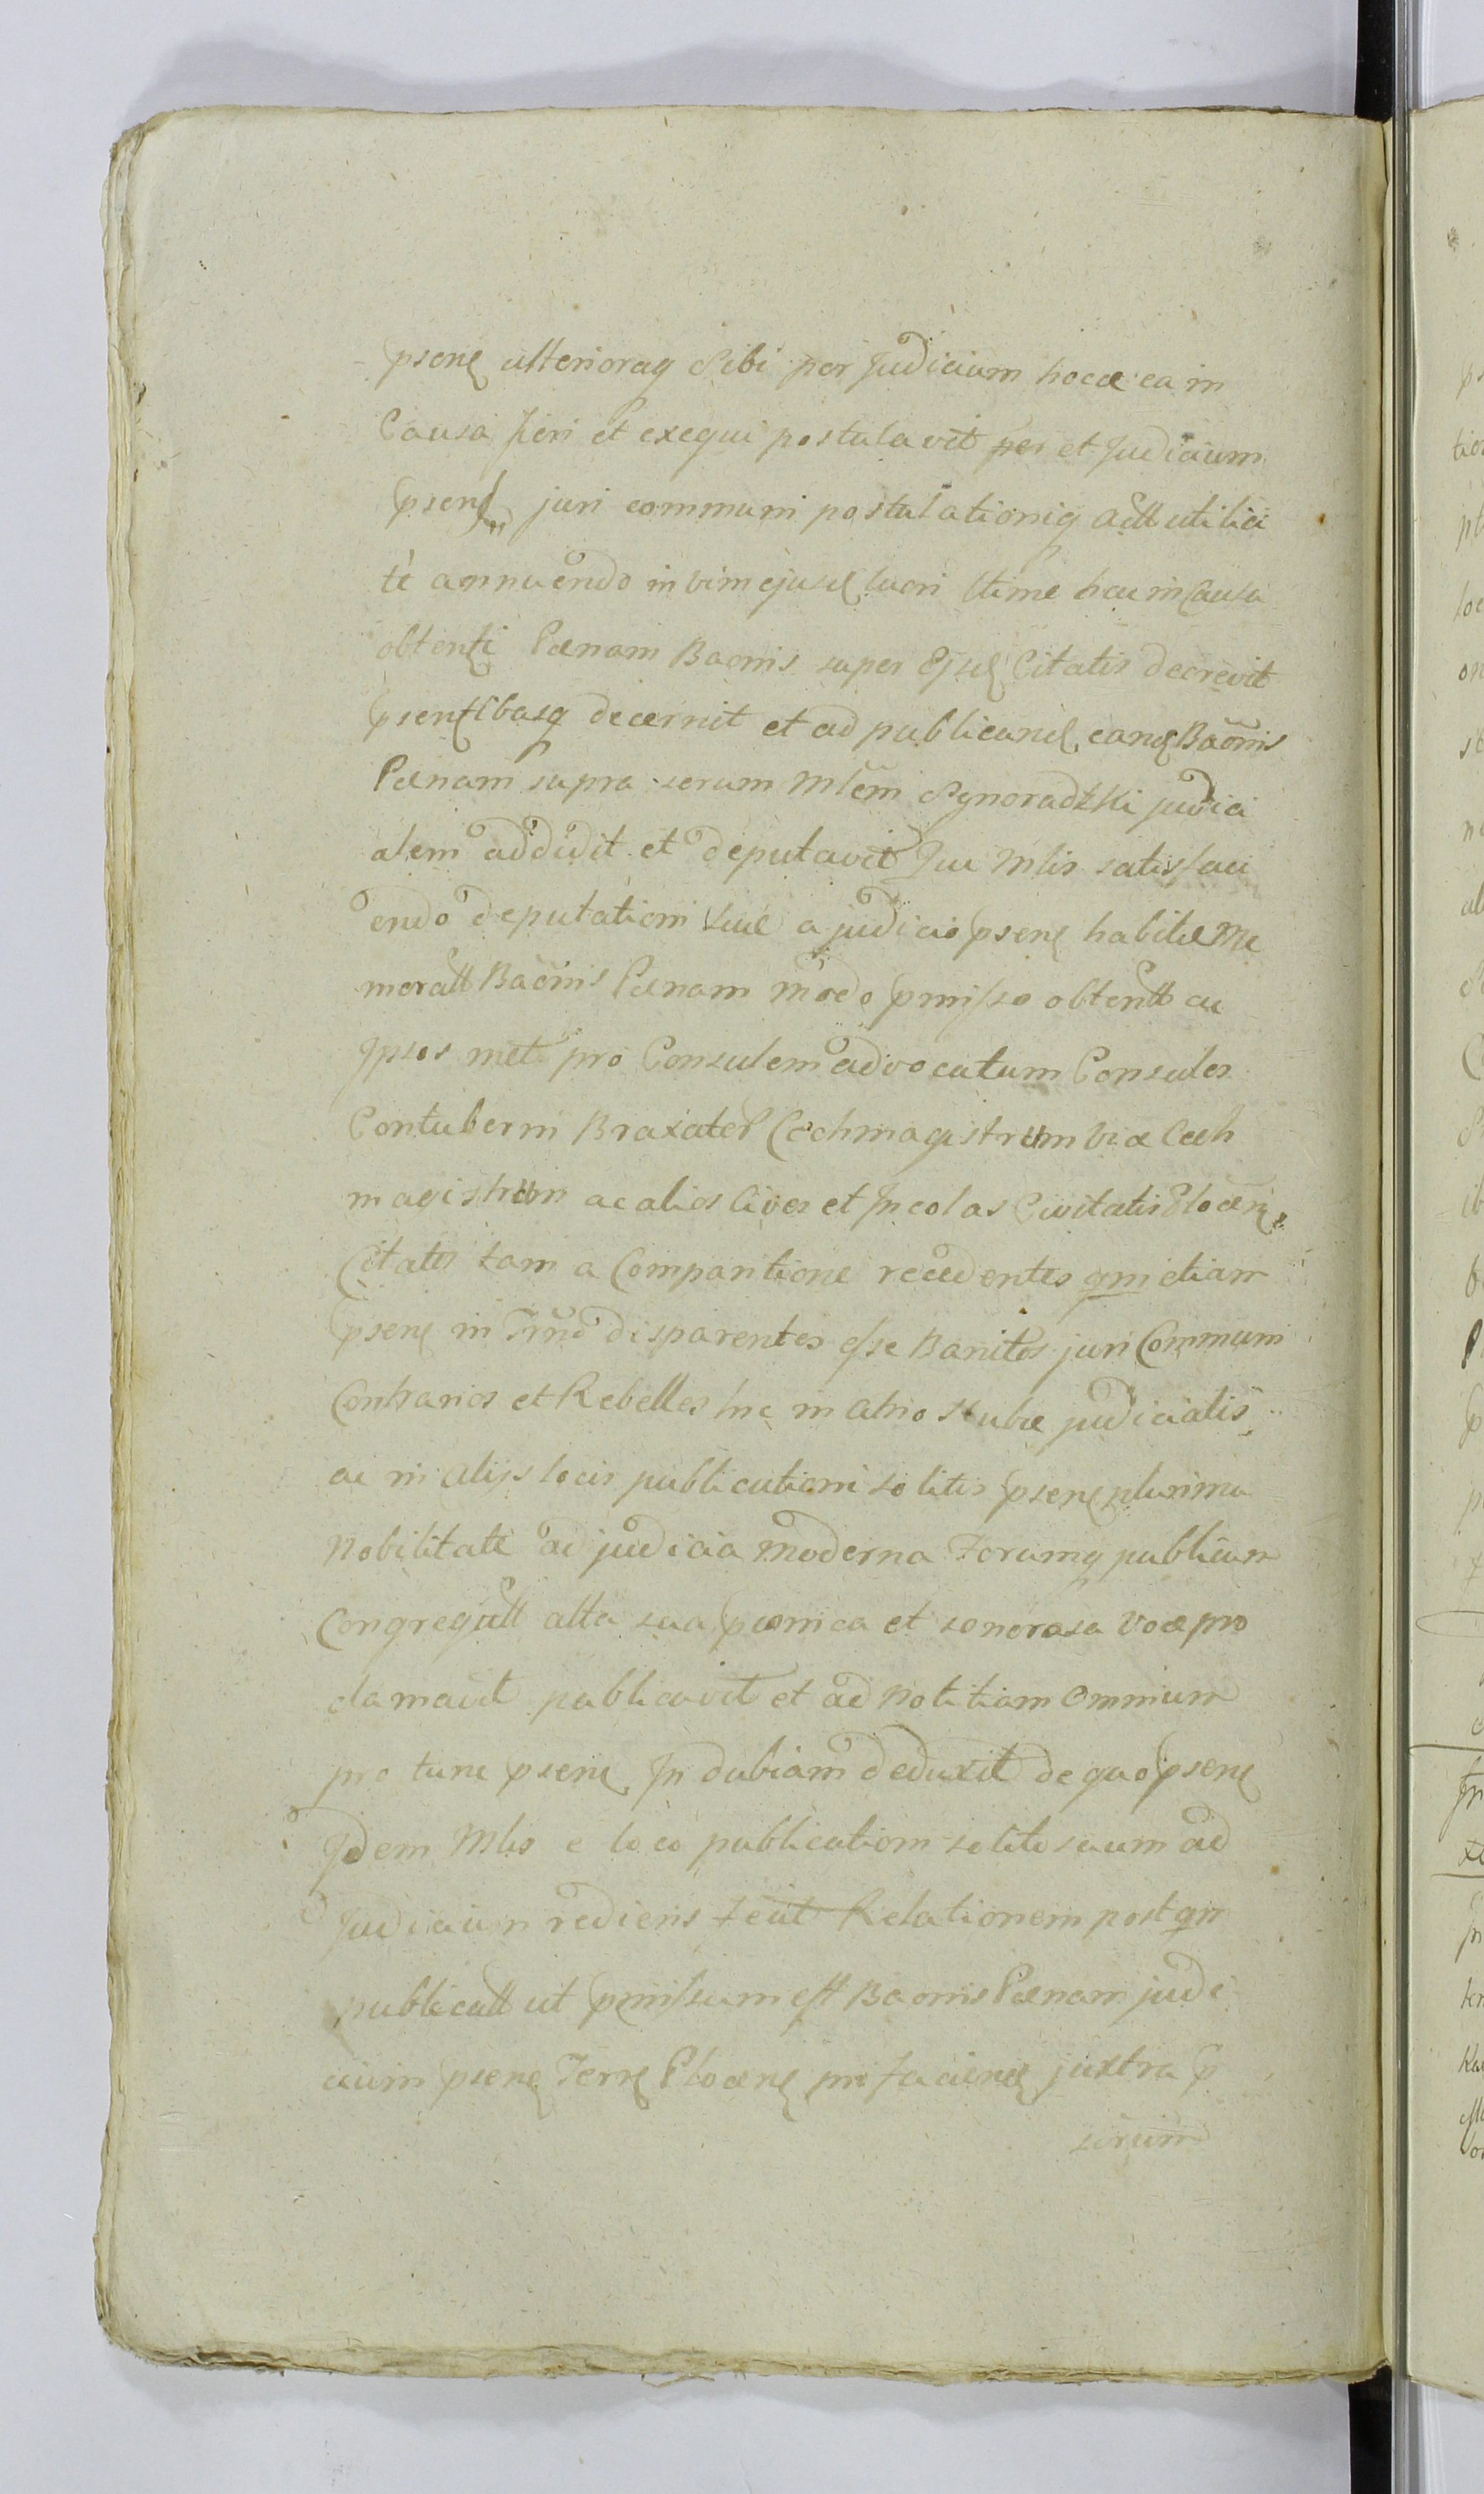 psens ulteriorag Sibi per Judicium hocce ea in
Causa fieri et exequi postulavit per et Judicium
psens juri communi postulationiq Actt utilici
te annuendo in vim ejusd lucri Ttime hac in Causa
obtenti Pænam Baonis super Ejsd Citatis decrevit
psentibusq decernit et ad publicand eand Baonis
Pænam supra serum Mlem Synoradzki judici
alem addidit et deputavit Qui Mlis satisfaci
endo deputationi suæ a judicio psens habitæ Me
moratt Baonis Pænam modo pmisso obtentt ac
Ipsos met pro Consulem advocatum Consules
Contuberni Braxator Cechmagistrum vice Cech
magistrum ac alios Cives et Incolas Civitatis Plocens
Citatos tam a Comparitione recedentes qm etiam
psens in Trno disparentes esse Banitos juri Communi
Contrarios et Rebelles hic in atrio stubæ judicialis
ac in alijs locis publicationi solitis psens plurima
Nobilitate ad judicia moderna Forumq publicum
Congregatt alta sua pconica et sonorosa voce pro
clamavit publicavit et ad Notitiam Omnium
pro tunc psens Indubiam deduxit de quo psens
Idem Mlis e loco publicationi solito suum ad
Judicium rediens fecit Relationem post qm
publicatt ut pmissum est Baonis Pænam judi
cium psens Terrs Plocens pro faciend juxtra p